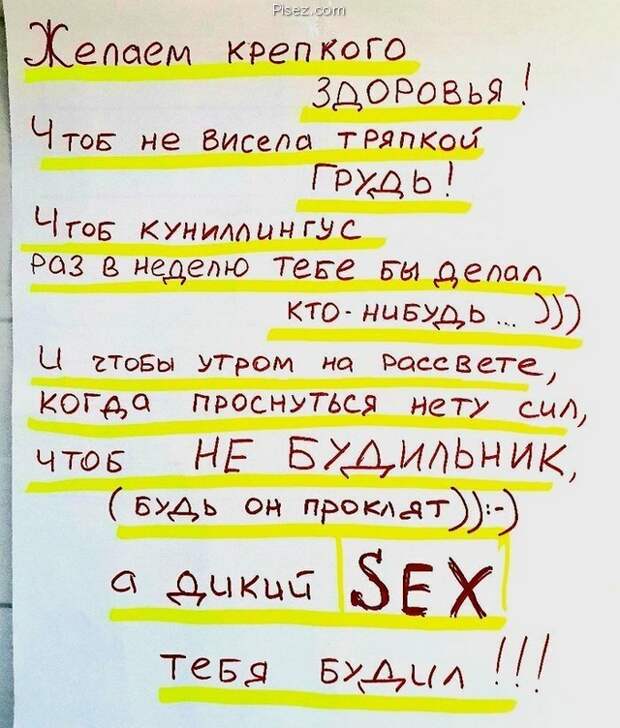 Pisez.com
Желаем крепкого
здоровья!
Чтоб не висела тряпкой
грудь!
Чтоб куниллингус
раз в неделю тебе бы делал
кто-нибудь... )))
И чтобы утром на рассвете,
когда проснуться нету сил,
чтоб НЕ БУДИЛЬНИК,
(будь он проклят)):-)
а дикий SEX
тебя будил!!!